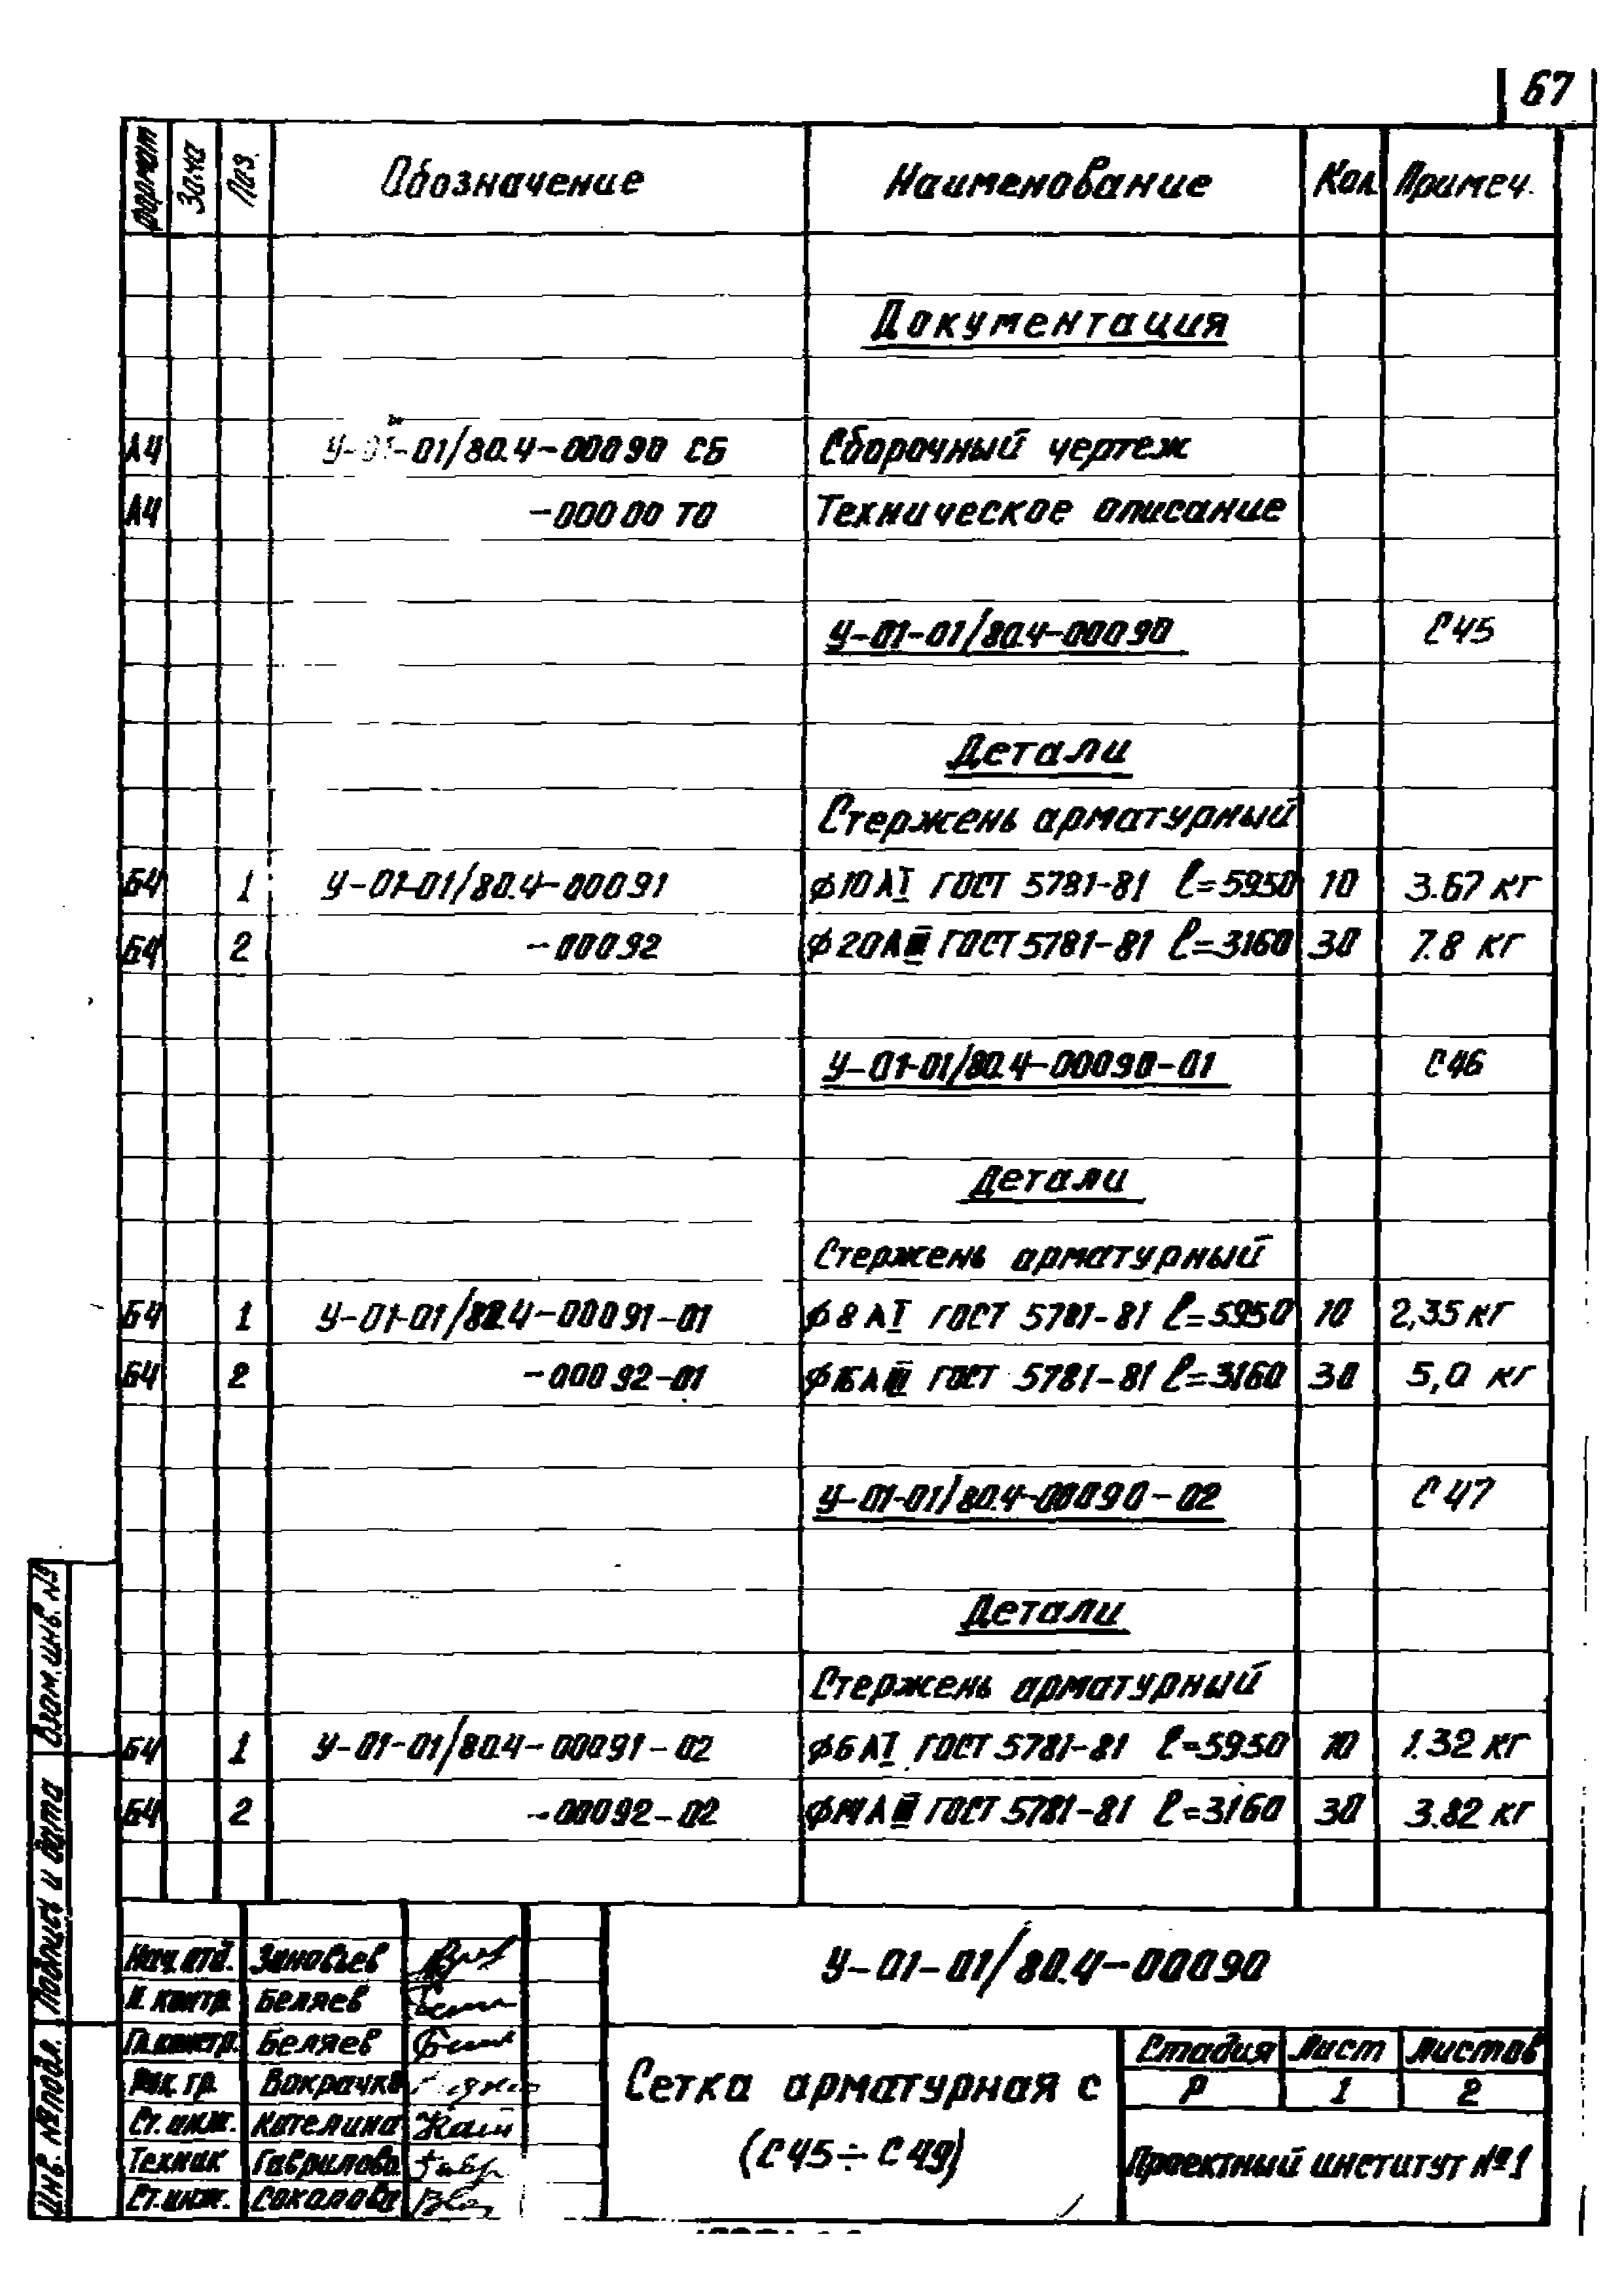 67
Формат Зона Поз. Обозначение Наименование Кол. Примеч.
Документация
А4 У-01-01/80.4-00090 СБ Сборочный чертеж
А4 -00000 ТО Техническое описание
У-01-01/80.4-00090 С45
Детали
Стержень арматурный
Б4 1 У-01-01/80.4-00091 ϕ10АI ГОСТ 5781-81 ℓ=5950 10 3.67 кг
Б4 2 -00092 ϕ20АIII ГОСТ 5781-81 ℓ=3160 30 7.8 кг
У-01-01/80.4-00090-01 С46
Детали
Стержень арматурный
Б4 1 У-01-01/80.4-00091-01 ϕ8АI ГОСТ 5781-81 ℓ=5950 10 2,35 кг
Б4 2 -00092-01 ϕ16АIII ГОСТ 5781-81 ℓ=3160 30 5,0 кг
У-01-01/80.4-00090-02 С47
Детали
Стержень арматурный
Б4 1 У-01-01/80.4-00091-02 ϕ6АI ГОСТ 5781-81 ℓ=5950 10 1.32 кг
Б4 2 -00092-02 ϕ14АIII ГОСТ 5781-81 ℓ=3160 30 3.82 кг
Взам. инв. №
Подпись и дата
Инв. № подл.
Нач. отд. Зиновьев
Н. контр. Беляев
Гл. констр. Беляев
Рук. гр. Вокрачко
Ст. инж. Кателина
Техник Гаврилова
Ст. инж. Соколова
У-01-01/80.4-00090
Сетка арматурная с
(С45÷С49)
Стадия Лист Листов
Р 1 2
Проектный институт №1